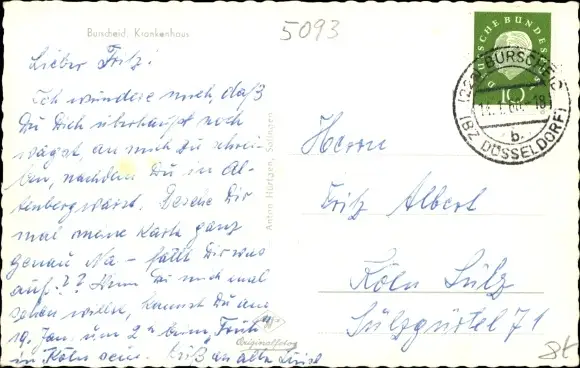 5093
Burscheid: Krankenhaus
Lieber Fritz!
Ich wundere mich, daß
Du Dich überhaupt noch
wagst, an mich zu schrei-
ben, nachdem Du in Al-
tenberg warst. Besehe Dir
mal meine Karte ganz
genau Na – fällt Dir was
auf?? Wenn Du mich mal
sehen willst, kannst Du am
19. Jan. um 2 beim "Früh"
in Köln sein. Gruß an alle
Anton Hürtgen, Solingen
Originalfoto
DEUTSCHE BUNDESPOST
10
(22a) BURSCHEID
-18
b
(BZ. DÜSSELDORF)
Herrn
Fritz Albert
Köln Sülz
Sülzgürtel 71